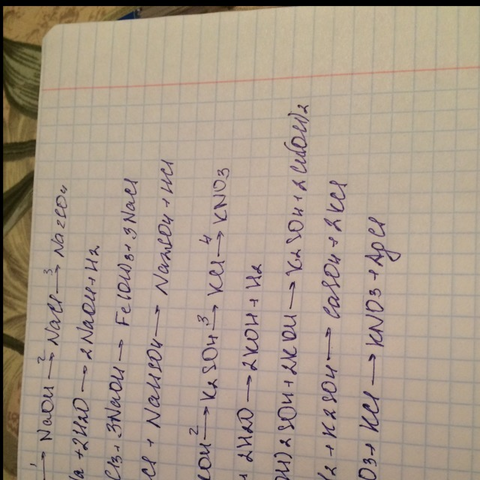 1→ NaOH 2→ NaCl 3→ Na2SO4
Na + 2H2O → 2NaOH + H2
Cl3 + 3NaOH → Fe(OH)3 + 3NaCl
Cl + NaHSO4 → Na2SO4 + HCl
KOH 2→ K2SO4 3→ KCl 4→ KNO3
+ 2H2O → 2KOH + H2
OH)2SO4 + 2KOH → K2SO4 + 2Cu(OH)2
l2 + K2SO4 → CaSO4 + 2KCl
O3 + KCl → KNO3 + AgCl